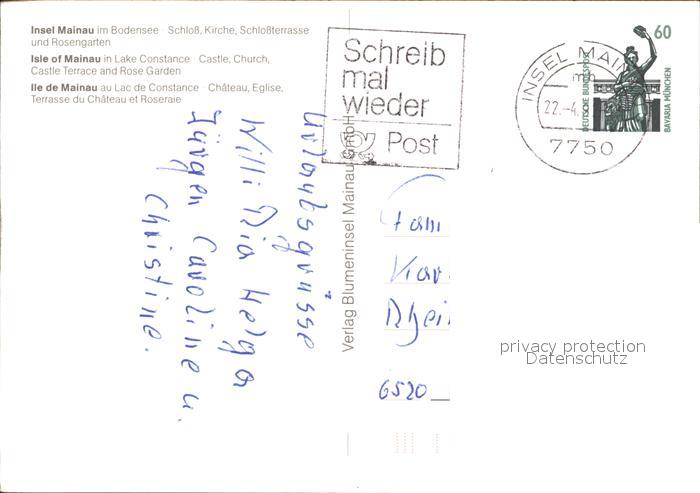 Insel Mainau im Bodensee · Schloß, Kirche, Schloßterrasse
und Rosengarten
Isle of Mainau in Lake Constance · Castle, Church,
Castle Terrace and Rose Garden
Ile de Mainau au Lac de Constance · Château, Eglise,
Terrasse du Château et Roseraie
Schreib
mal
wieder
Post
INSEL MAIN
22.-4.
7750
60
DEUTSCHE BUNDESPOST
BAVARIA MÜNCHEN
Verlag Blumeninsel Mainau GmbH
Urlaubsgrüsse
Willi Ria Helga
Jürgen Caroline u.
Christine.
Fam
Rhei
6520
privacy protection
Datenschutz